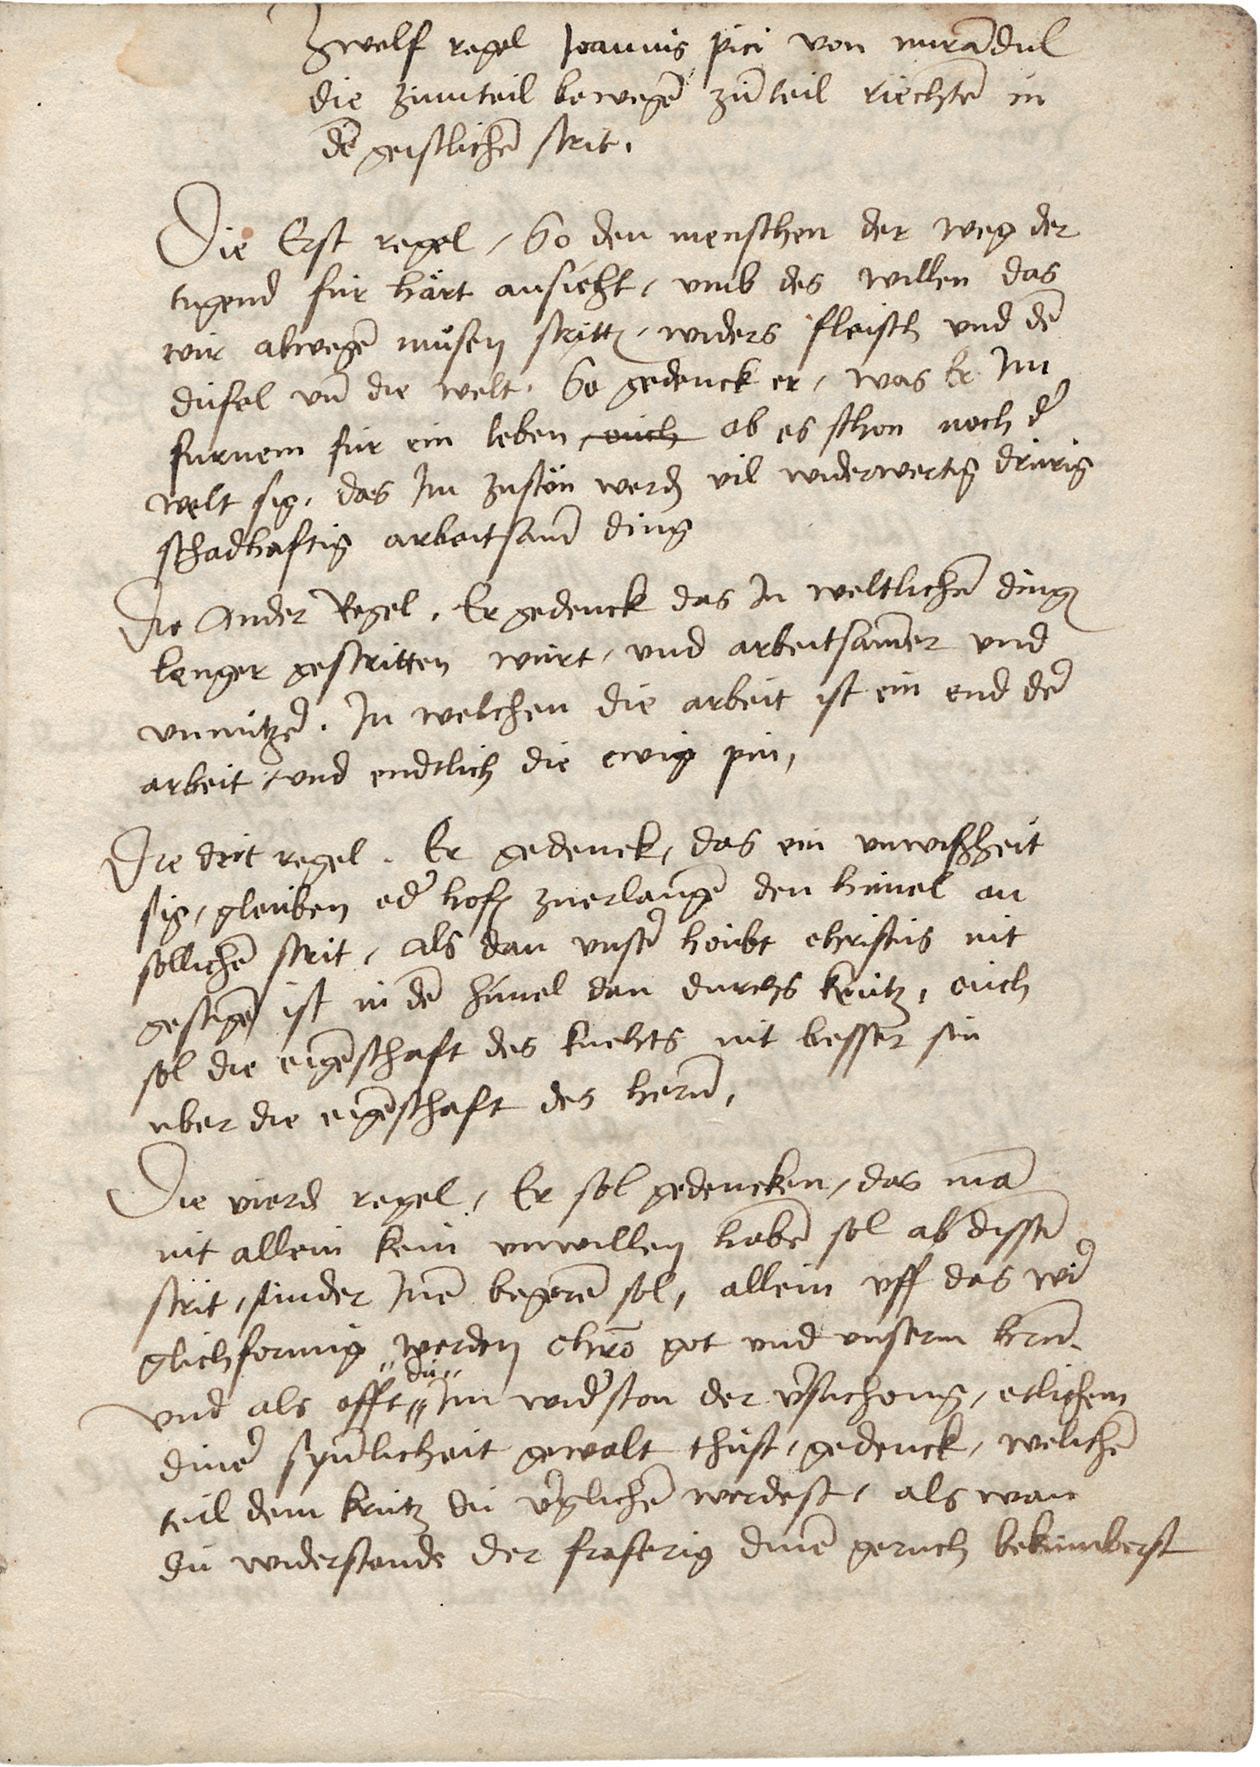 Zwelf regel Joannis pici von mirādul
die zumteil bewegē zūteil riechtē in
dē geistlichē strit.
Die Erst regel / So den menschen der weg der
tugend für härt ansieht / umb des willen das
wir alwegē müsen stritten / widers fleisch und dē
düfel uñ die welt. So gedenck er / was Er Im
furnem für ein leben ob es schon noch d'
welt sig. das Im zustön werdē vil widerwertig drurig
schadhaftig arbeitsam ding
Die Ander Regel. Er gedenck das In weltlichē dingen
lenger gestritten würt / und arbeitsamer und
unnützer. In welchen die arbeit ist ein end der
arbeit / und endtlich die ewig pin,
Die drit regel. Er gedenck / das ein unwißheit
sig / gleuben oder hofen zuerlangē den himel an
sollichē strit / als dan unser houbt christus nit
gestigē ist in dē himel dan durchs krütz / ouch
sol die eigēschaft des knechts nit besser sin
uber die eigēschaft des herñ,
Die vierd regel / Er sol gedencken / das mā
nit allein kein unwillen habē sol ab dissē
strit / sunder Inē begerē sol, allein uff das wir
glichformig werden chrō got und unserm herñ.
und als offt du Im widerston der v'suchong / etlichem
diner synlicheit gewalt thüst / gedenck / welichē
teil dem krütz du v'glichē werdest / als wan
du widerstande der fraserig dinē geruch bekümberst